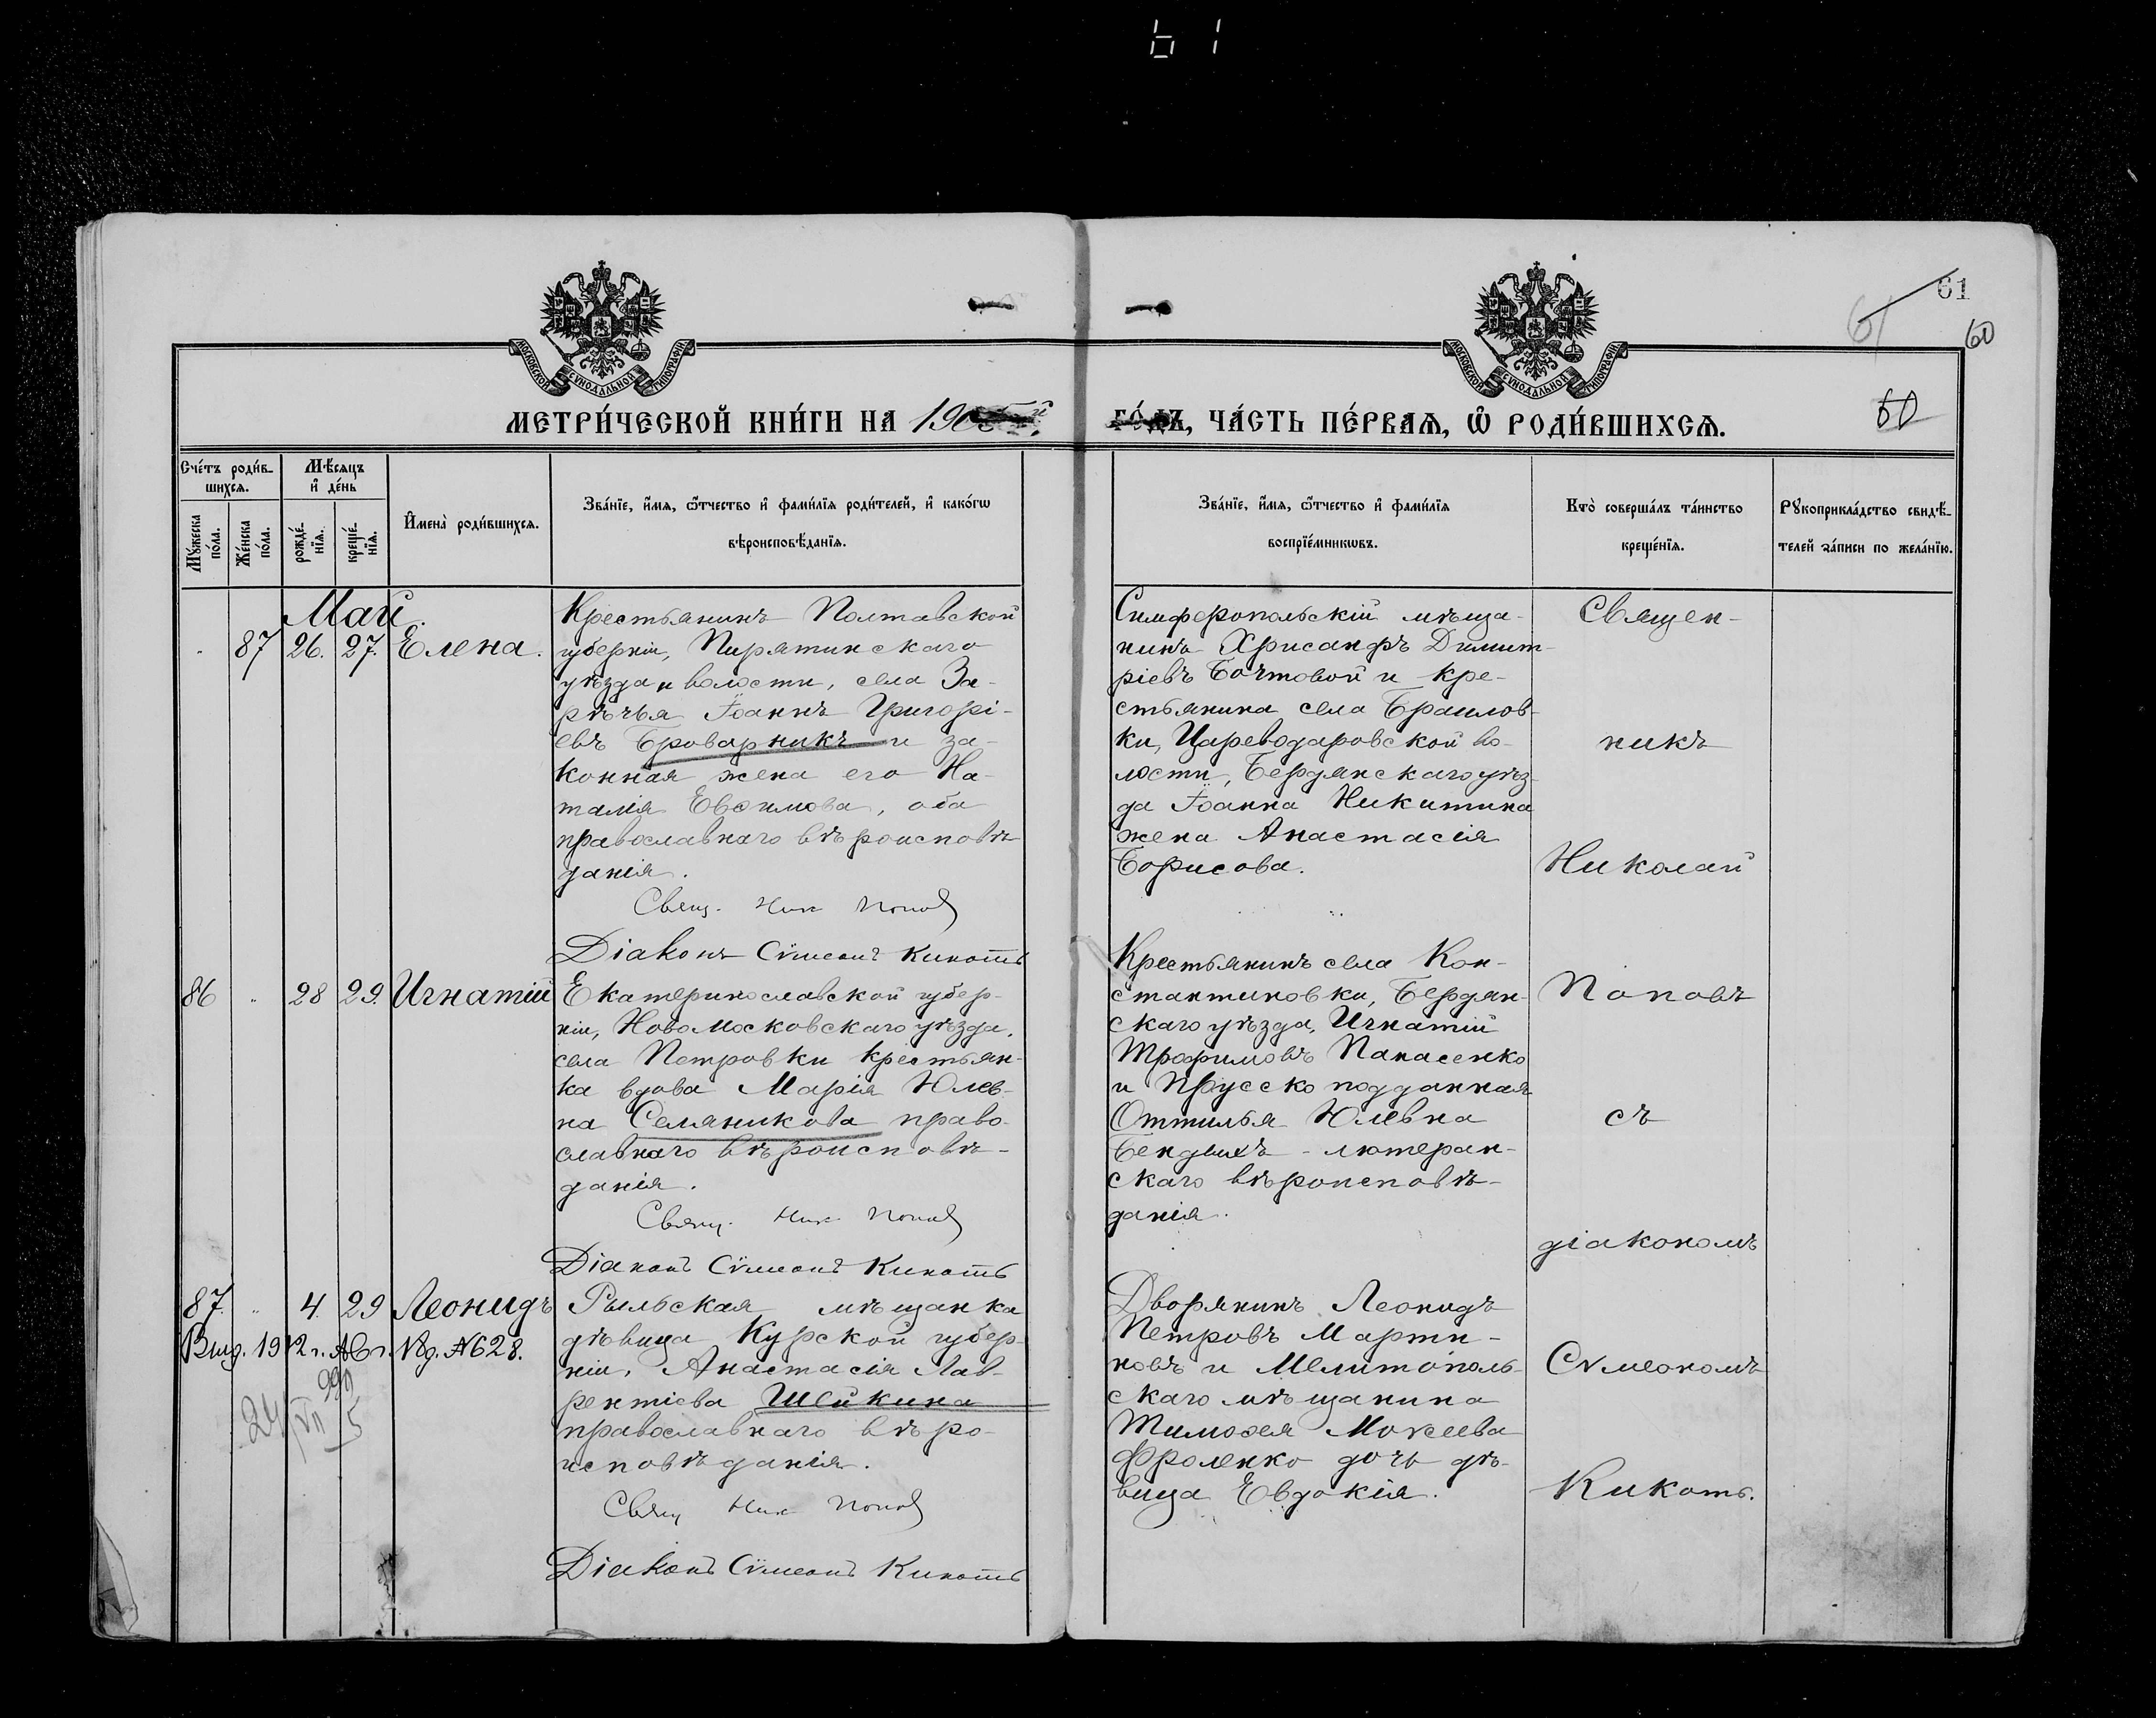 61
61
61
60
60
МОСКОВСКОЙ СѴНОДАЛЬНОЙ ТИПОГРАФІИ
МОСКОВСКОЙ СѴНОДАЛЬНОЙ ТИПОГРАФІИ
МЕТРИ́ЧЕСКОЙ КНИ́ГИ НА 190 ГО́ДЪ, ЧА́СТЬ ПЕ́РВАѦ, Ѡ҃ РОДИ́ВШИХСѦ.
Сче́тъ роди́в-
шихсѧ.
Мꙋ́жеска по́ла.
Же́нска по́ла.
Мѣ́сѧцъ
и҆ де́нь
рожде́-
нїѧ.
креще́-
нїѧ.
И҆мена̀ роди́вшихсѧ.
Зва́нїе, и҆́мѧ, ѻ҆́тчество и҆ фами́лїѧ роди́телей, и҆ како́гѡ
вѣроисповѣ́данїѧ.
Зва́нїе, и҆́мѧ, ѻ҆́тчество и҆ фами́лїѧ
воспрїе́мникѡвъ.
Кто̀ соверша́лъ та́инство
креще́нїѧ.
Рꙋкоприкла́дство свидѣ́-
телей за́писи по жела́нїю.
Май.
87 26. 27. Елена.
Крестьянинъ Полтавской
губерніи, Пирятинскаго
уѣзда и волости, села За-
рѣчья Іоаннъ Григорі-
евъ Броварникъ и за-
конная жена его На-
талія Евѳимова, оба
православнаго вѣроисповѣ-
данія.
Свящ. Ник Попов
Діаконъ Сѵмеонъ Кикоть
Симферопольскій мѣща-
нинъ Хрисанфъ Димит-
ріевъ Бочтовой и кре-
стьянина села Браилов-
ки, Цареводаровской во-
лости, Бердянскаго уѣз-
да Іоанна Никитина
жена Анастасія
Борисова.
86 28 29. Игнатій
Екатеринославской губер-
ніи, Новомосковскаго уѣзда,
села Петровки крестьян-
ка вдова Марія Юлев-
на Селяникова право-
славнаго вѣроисповѣ-
данія.
Свящ. Ник Попов
Діаконъ Сѵмеонъ Кикоть
Крестьянинъ села Кон-
стантиновки, Бердян-
скаго уѣзда, Игнатій
Трофимовъ Панасенко
и Прусско подданная
Оттилья Юлевна
Бендихъ - лютеран-
скаго вѣроисповѣ-
данія.
87. 4. 29 Леонидъ
Выд. 1912 г. Авг. № 628.
24/VII 5
Рыльская мѣщанка
дѣвица Курской губер-
ніи, Анастасія Лав-
рентіева Шейкина
православнаго вѣро-
исповѣданія.
Свящ Ник Попов
Діаконъ Сѵмеонъ Кикоть
Дворянинъ Леонидъ
Петровъ Марти-
новъ и Мелитополь-
скаго мѣщанина
Тимоѳея Мокеева
Фроленко дочь дѣ-
вица Евдокія.
Священ-
никъ
Николай
Поповъ
съ
діакономъ
Сѵмеономъ
Кикоть.